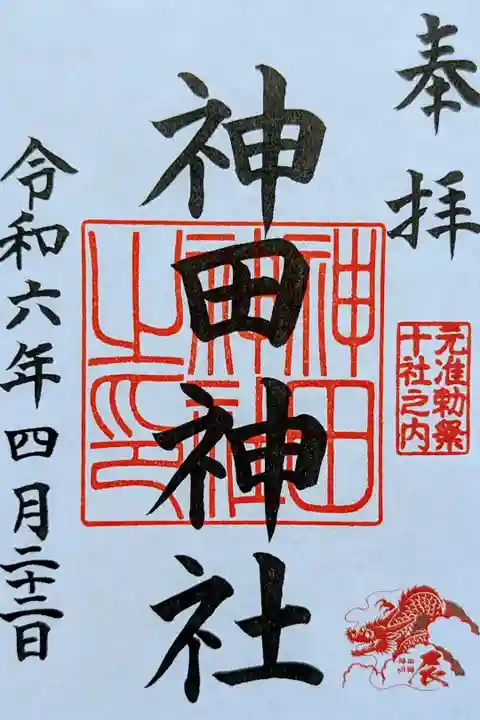 奉拝
元准勅祭
十社之内
辰
神田神社
神田
神社
之印
令和六年四月二十三日